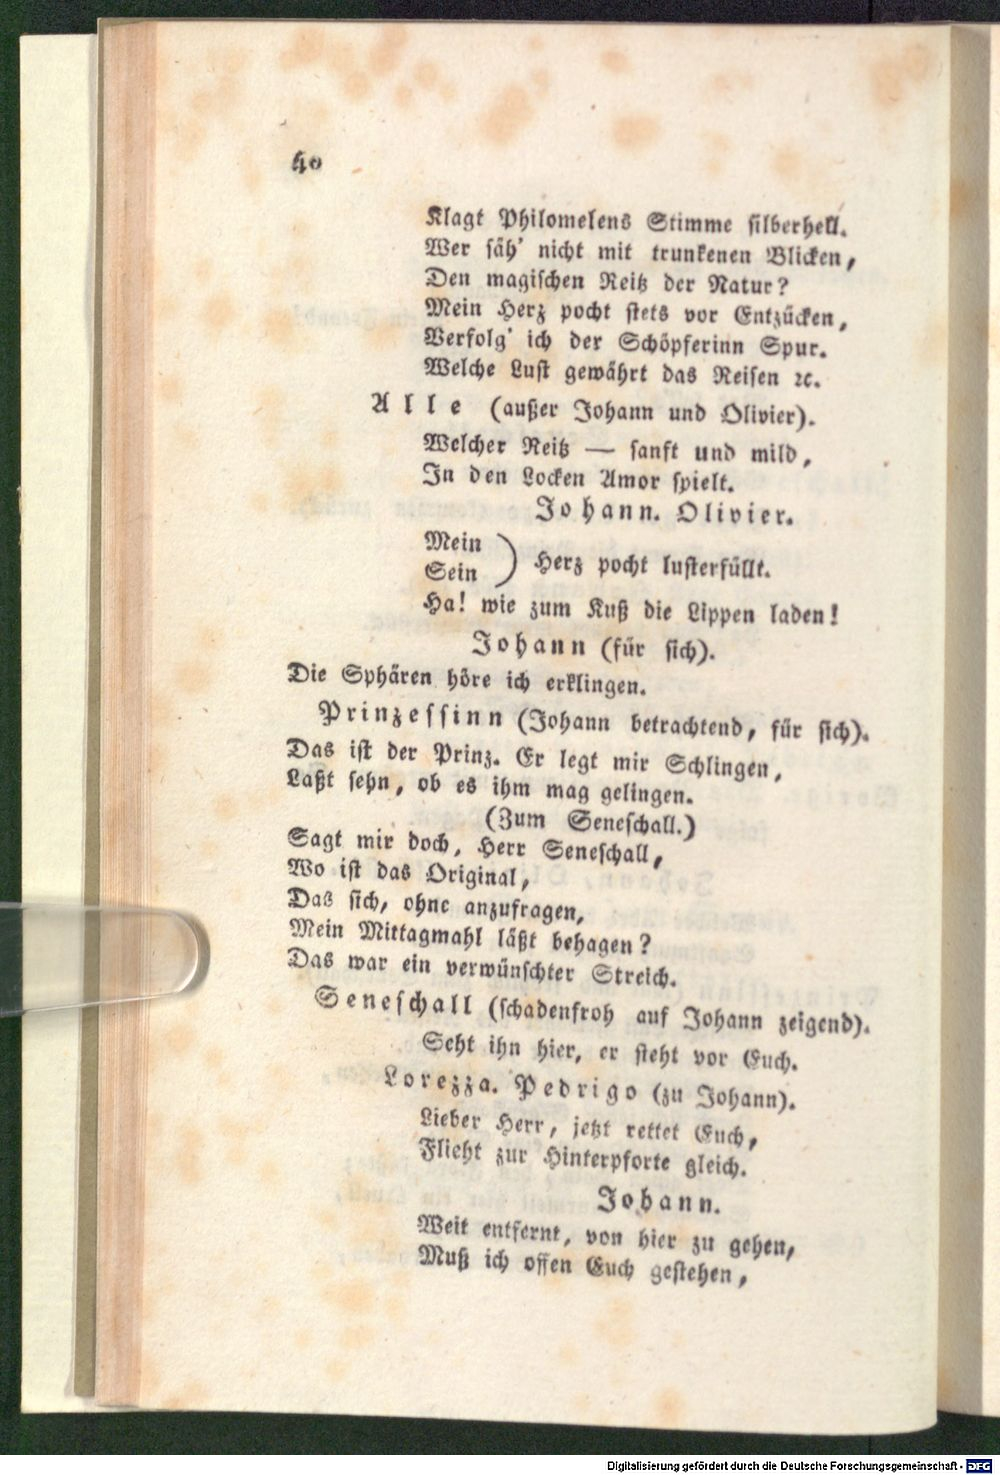 40
Klagt Philomelens Stimme silberhell.
Wer säh' nicht mit trunkenen Blicken,
Den magischen Reitz der Natur?
Mein Herz pocht stets vor Entzücken,
Verfolg' ich der Schöpferinn Spur.
Welche Lust gewährt das Reisen ꝛc.
Alle (außer Johann und Olivier).
Welcher Reitz — sanft und mild,
In den Locken Amor spielt.
Johann. Olivier.
Mein
Sein ) Herz pocht lusterfüllt.
Ha! wie zum Kuß die Lippen laden!
Johann (für sich).
Die Sphären höre ich erklingen.
Prinzessinn (Johann betrachtend, für sich).
Das ist der Prinz. Er legt mir Schlingen,
Laßt sehn, ob es ihm mag gelingen.
(Zum Seneschall.)
Sagt mir doch, Herr Seneschall,
Wo ist das Original,
Das sich, ohne anzufragen,
Mein Mittagmahl läßt behagen?
Das war ein verwünschter Streich.
Seneschall (schadenfroh auf Johann zeigend).
Seht ihn hier, er steht vor Euch.
Lorezza. Pedrigo (zu Johann).
Lieber Herr, jetzt rettet Euch,
Flieht zur Hinterpforte gleich.
Johann.
Weit entfernt, von hier zu gehen,
Muß ich offen Euch gestehen,
Digitalisierung gefördert durch die Deutsche Forschungsgemeinschaft - DFG